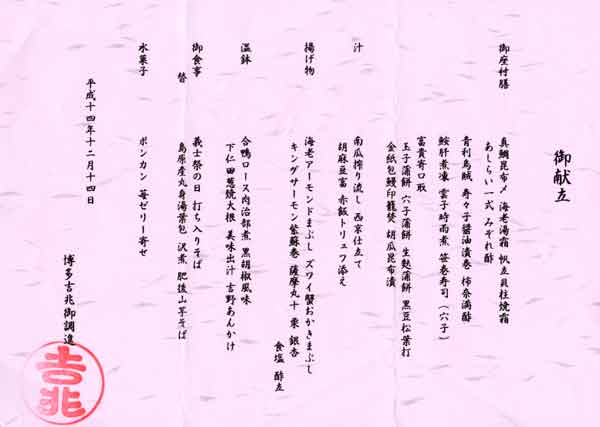 御献立
御座付膳
真鯛昆布〆 海老湯霜 帆立貝柱焼霜
あしらい一式 みぞれ酢
青利烏賊 寿々子醤油漬巻 柿奈満酢
鮟肝煮凍 雲子時雨煮 笹巻寿司(穴子)
富貴寄口取
玉子蒲餅 穴子蒲餅 生麩蒲餅 黒豆松葉打
金紙包鰻印籠煲 胡瓜昆布漬
汁
南瓜搾り流し 西京仕立て
胡麻豆富 赤飯トリュフ添え
揚げ物
海老アーモンドまぶし ズワイ蟹おかきまぶし
キングサーモン紫蘇巻 薩摩丸十 栗 銀杏
食塩 酢立
温鉢
合鴨ロース肉治部煮 黒胡椒風味
下仁田葱焼大根 美味出汁 吉野あんかけ
御食事
義士祭の日 打ち入りそば
替
島原産丸身湯葉包 沢煮 肥後山芋そば
水菓子
ポンカン 苺ゼリー寄せ
平成十四年十二月十四日
博多吉兆御調進
吉兆